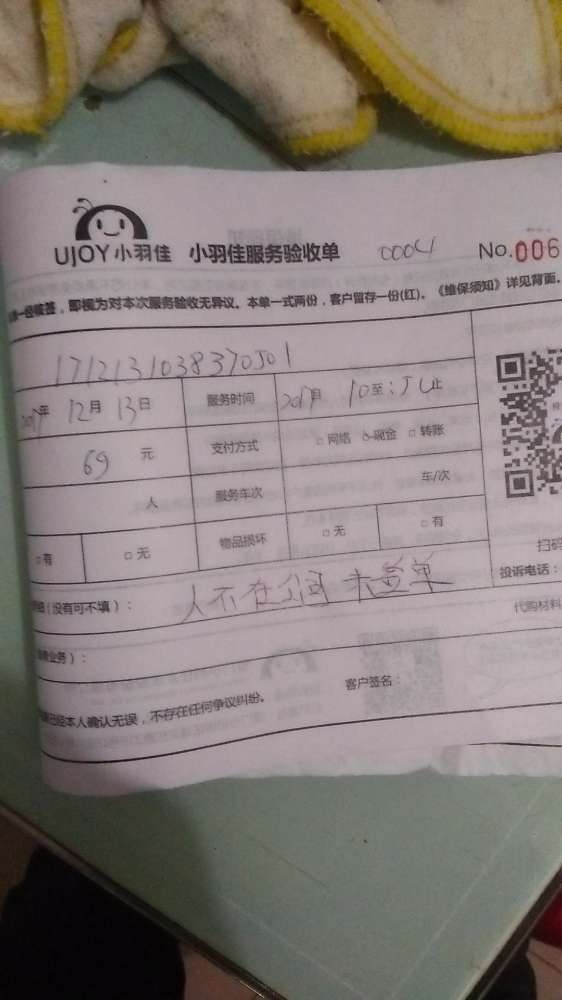 UJOY 小羽佳 小羽佳服务验收单 0004 No.006
一经核签，即视为对本次服务验收无异议。本单一式两份，客户留存一份(红)。《维保须知》详见背面。
1712131038370501
2017年 12月 13日 服务时间 2017月 10至: 止
69 元 支付方式 □网络 现金 □转账
人 服务车次 车/次
□有 □无 物品损坏 □无 □有
扫码
(没有可不填)： 人不在公司 未签单 投诉电话：
代购材料
业务)：
已经本人确认无误，不存在任何争议纠纷。 客户签名：